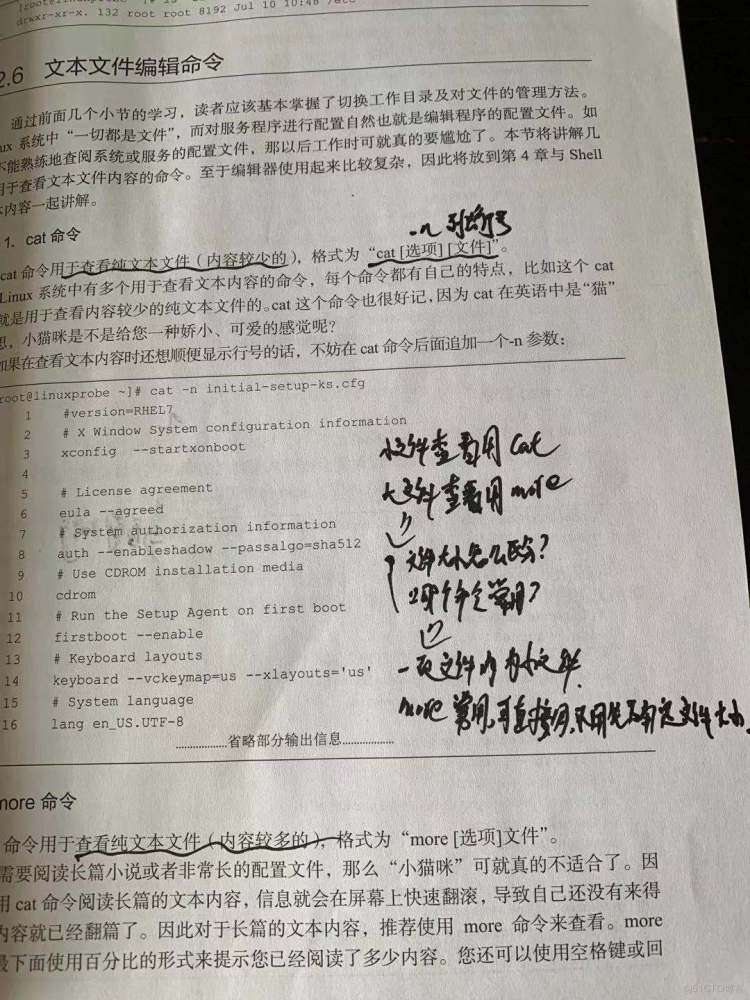 drwxr-xr-x. 132 root root 8192 Jul 10 10:48 /etc
2.6 文本文件编辑命令
通过前面几个小节的学习，读者应该基本掌握了切换工作目录及对文件的管理方法。
ux 系统中“一切都是文件”，而对服务程序进行配置自然也就是编辑程序的配置文件。如
不能熟练地查阅系统或服务的配置文件，那以后工作时可就真的要尴尬了。本节将讲解几
用于查看文本文件内容的命令。至于编辑器使用起来比较复杂，因此将放到第 4 章与 Shell
本内容一起讲解。
-n 列出行号
1. cat 命令
cat 命令用于查看纯文本文件（内容较少的），格式为“cat [选项] [文件]”。
Linux 系统中有多个用于查看文本内容的命令，每个命令都有自己的特点，比如这个 cat
就是用于查看内容较少的纯文本文件的。cat 这个命令也很好记，因为 cat 在英语中是“猫”
想，小猫咪是不是给您一种娇小、可爱的感觉呢？
如果在查看文本内容时还想顺便显示行号的话，不妨在 cat 命令后面追加一个-n 参数：
root@linuxprobe ~]# cat -n initial-setup-ks.cfg
1 #version=RHEL7
2 # X Window System configuration information
3 xconfig --startxonboot
4
5 # License agreement
6 eula --agreed
7 # System authorization information
8 auth --enableshadow --passalgo=sha512
9 # Use CDROM installation media
10 cdrom
11 # Run the Setup Agent on first boot
12 firstboot --enable
13 # Keyboard layouts
14 keyboard --vckeymap=us --xlayouts='us'
15 # System language
16 lang en_US.UTF-8
小文件查看用 cat
大文件查看用 more
文件大小怎么区分？
哪个命令常用？
一页文件内为小文件
more 常用，可直接用，不用先确定文件大小。
………………省略部分输出信息………………
more 命令
命令用于查看纯文本文件（内容较多的），格式为“more [选项]文件”。
需要阅读长篇小说或者非常长的配置文件，那么“小猫咪”可就真的不适合了。因
用 cat 命令阅读长篇的文本内容，信息就会在屏幕上快速翻滚，导致自己还没有来得
内容就已经翻篇了。因此对于长篇的文本内容，推荐使用 more 命令来查看。more
最下面使用百分比的形式来提示您已经阅读了多少内容。您还可以使用空格键或回
@51CTO博客